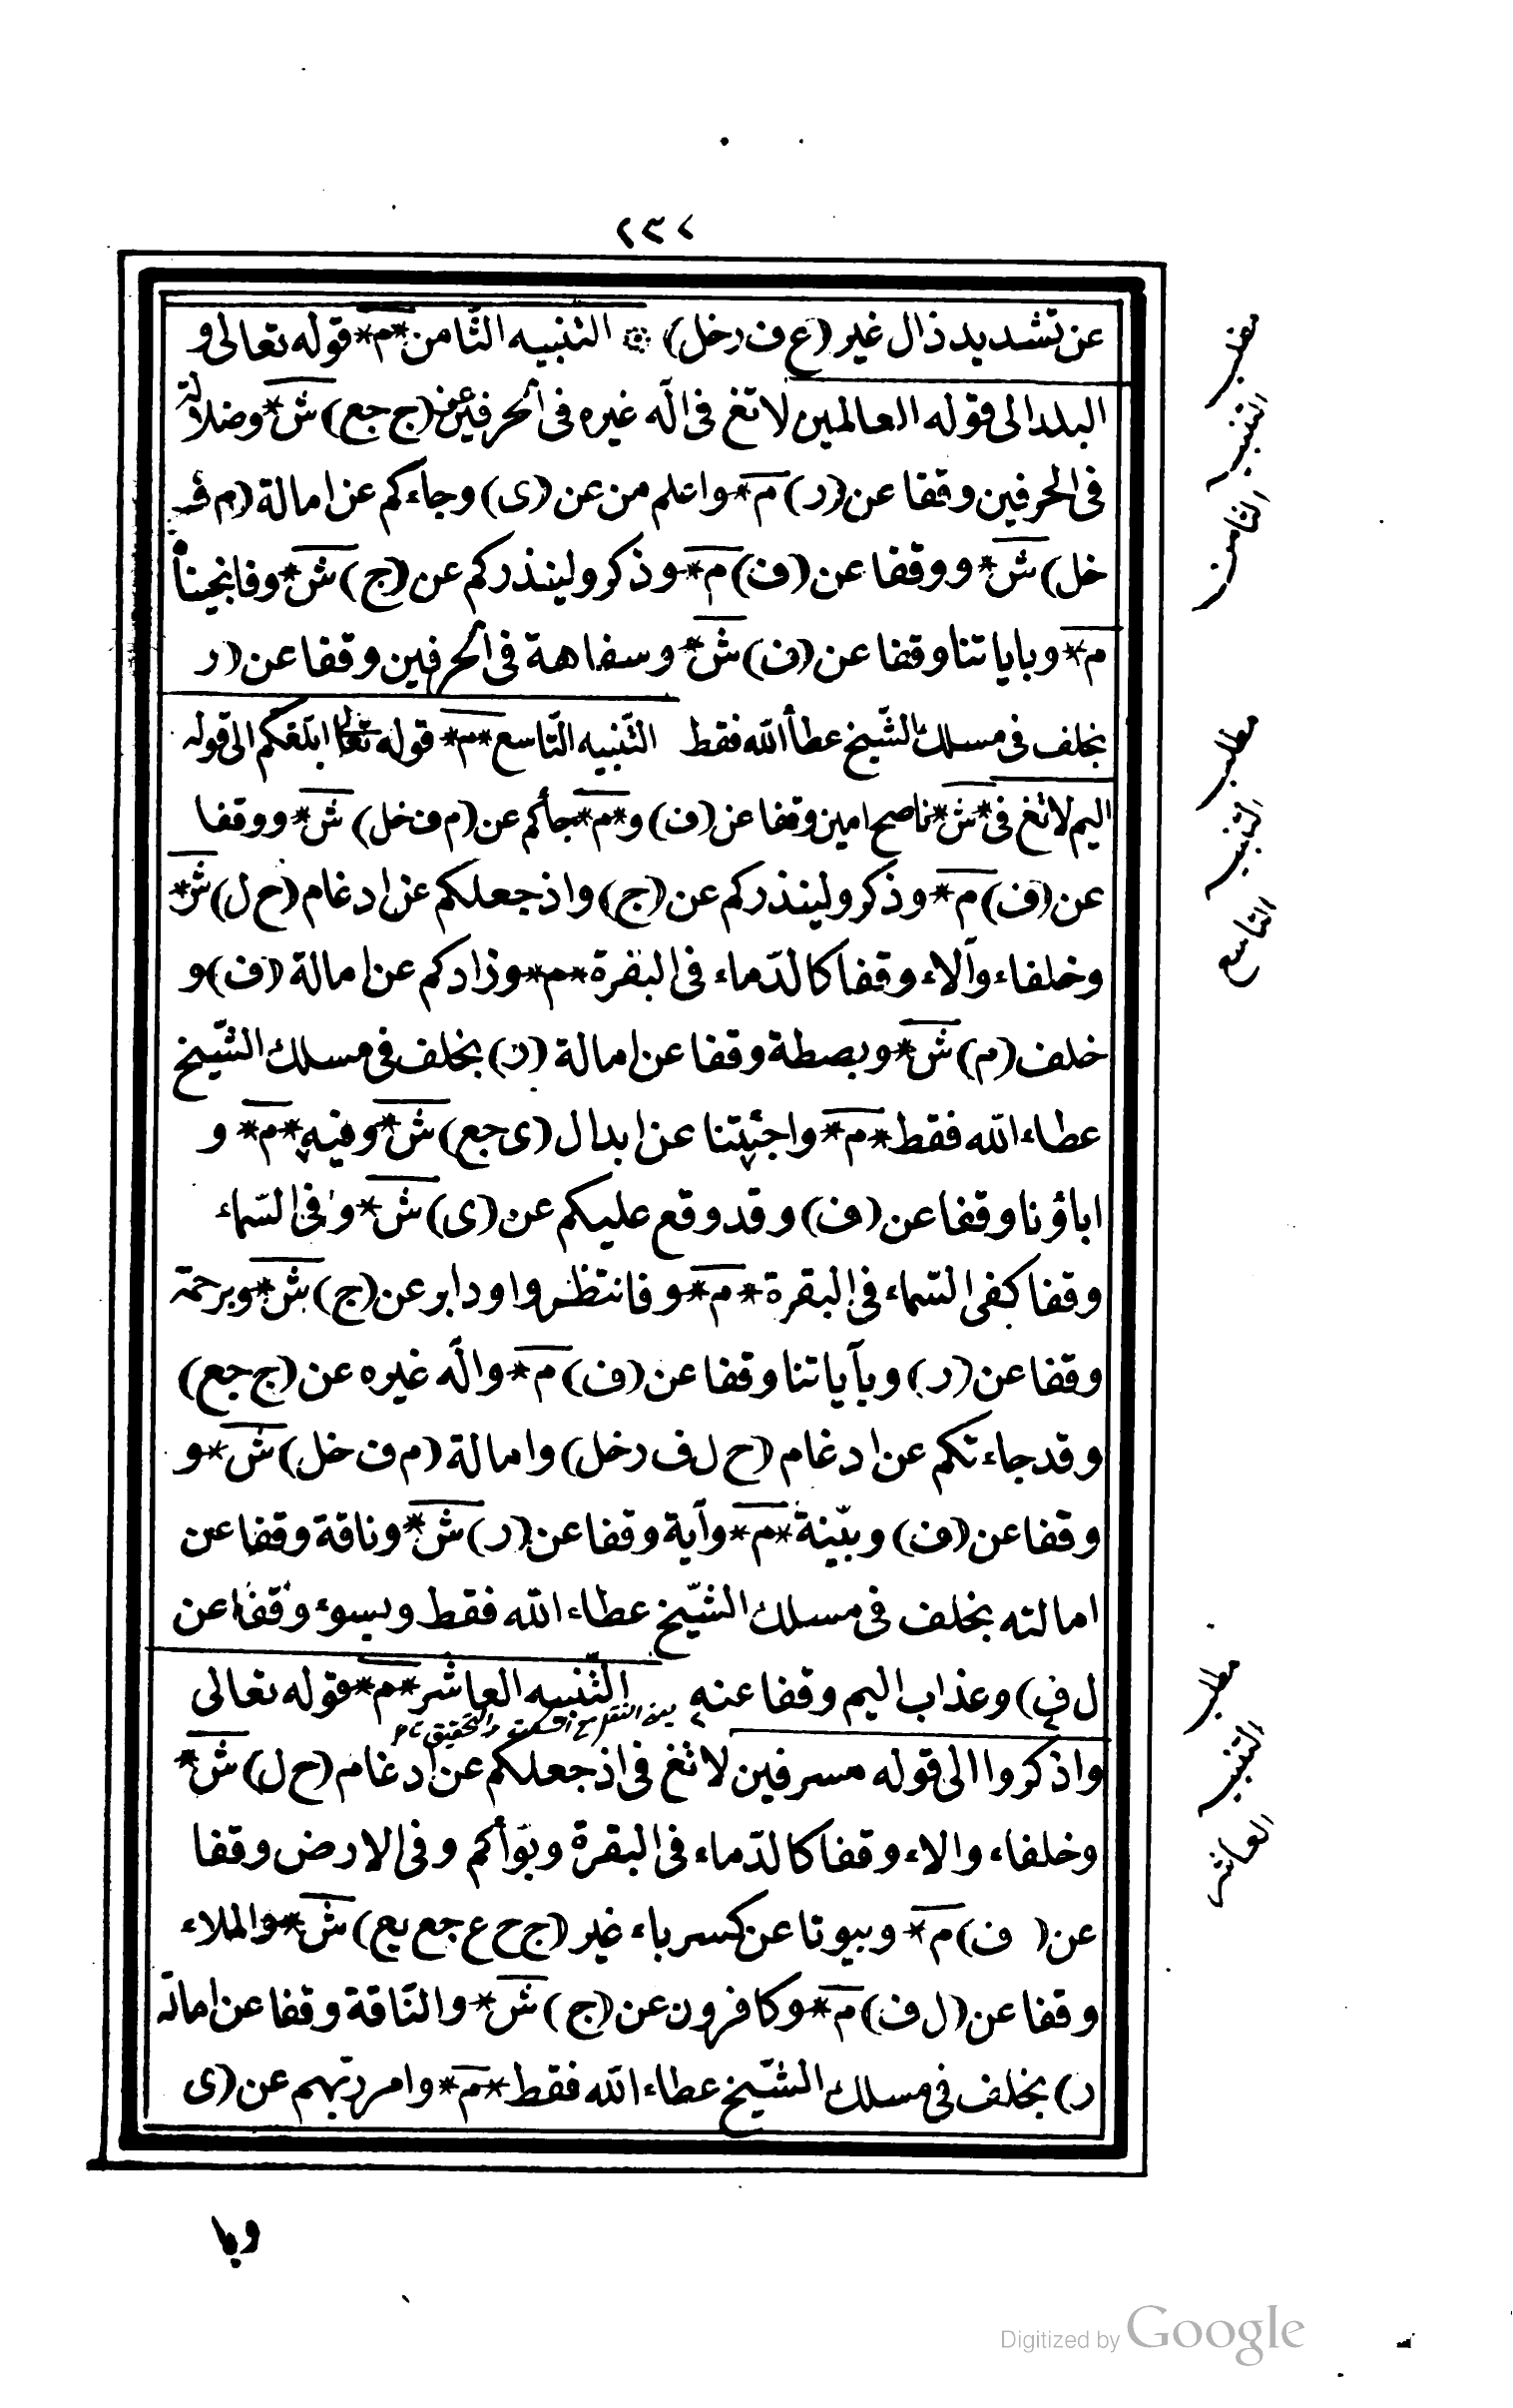 ٢٣٧
عن تشديد ذال غير (ع ف رخل) ۞ التنبيه الثّامن *م* قوله تعالى و
البلد الى قوله العالمين لا تغ فى اله غيره فى الحرفين عن (ج جع) ش* وضلالة
فى الحرفين وقفا عن (ر) م* واعلم من عن (ى) وجاءكم عن امالة (م ف
خل) ش* ووقفا عن (ف) م* وذكر ولينذركم عن (ج) ش* وفانجيناه
م* وباياتنا وقفا عن (ف) ش* وسفاهة فى الحرفين وقفا عن (ر
بخلف فى مسلك الشّيخ عطأ الله فقط التّنبيه التّاسع *م* قوله تعالى ابلغكم الى قوله
اليم لا تغ فى *ش* ناصح امين وقفا عن (ف) و*م* جأكم عن (م ف خل) ش* ووقفا
عن (ف) م* وذكر ولينذركم عن (ج) واذ جعلكم عن ادغام (ح ل) ش*
وخلفاء وآلاء وقفا كالدّماء فى البقرة *م* وزادكم عن امالة (ف) و
خلف (م) ش* وبصطة وقفا عن امالة (ر) بخلف فى مسلك الشّيخ
عطاء الله فقط *م* واجئتنا عن ابدال (ى جع) ش* وفيه *م* و
اباؤنا وقفا عن (ف) وقد وقع عليكم عن (ى) ش* وفى السّماء
وقفا كفى السّماء فى البقرة *م* وفانتظروا ودابر عن (ج) ش* وبرحمة
وقفا عن (ر) وبآياتنا وقفا عن (ف) م* واله غيره عن (ج جع)
وقد جاءتكم عن ادغام (ح ل ف رخل) وامالة (م ف خل) ش* و
وقفا عن (ف) وبيّنة *م* وآية وقفا عن (ر) ش* وناقة وقفا عن
امالته بخلف فى مسلك الشّيخ عطاء الله فقط وبسوء وقفا عن
ل ف) وعذاب اليم وقفا عنه التّنبيه العاشر *م* قوله تعالى
بين النقل مع السكت والتحقيق
واذكروا الى قوله مسرفين لا تغ فى اذ جعلكم عن ادغام (ح ل) ش*
وخلفاء والاء وقفا كالدّماء فى البقرة وبوّأكم وفى الارض وقفا
عن ( ف) م* وبيوتا عن كسر باء غير (ج ح ع جع يع) ش* والملاء
وقفا عن (ل ف) م* وكافرون عن (ج) ش* والنّاقة وقفا عن امالة
ر) بخلف فى مسلك الشّيخ عطاء الله فقط *م* وامر ربّهم عن (ى
وبا
مطلب
التنبيه
الثامن
مطلب
التنبيه
التاسع
مطلب
التنبيه
العاشر
Digitized by Google